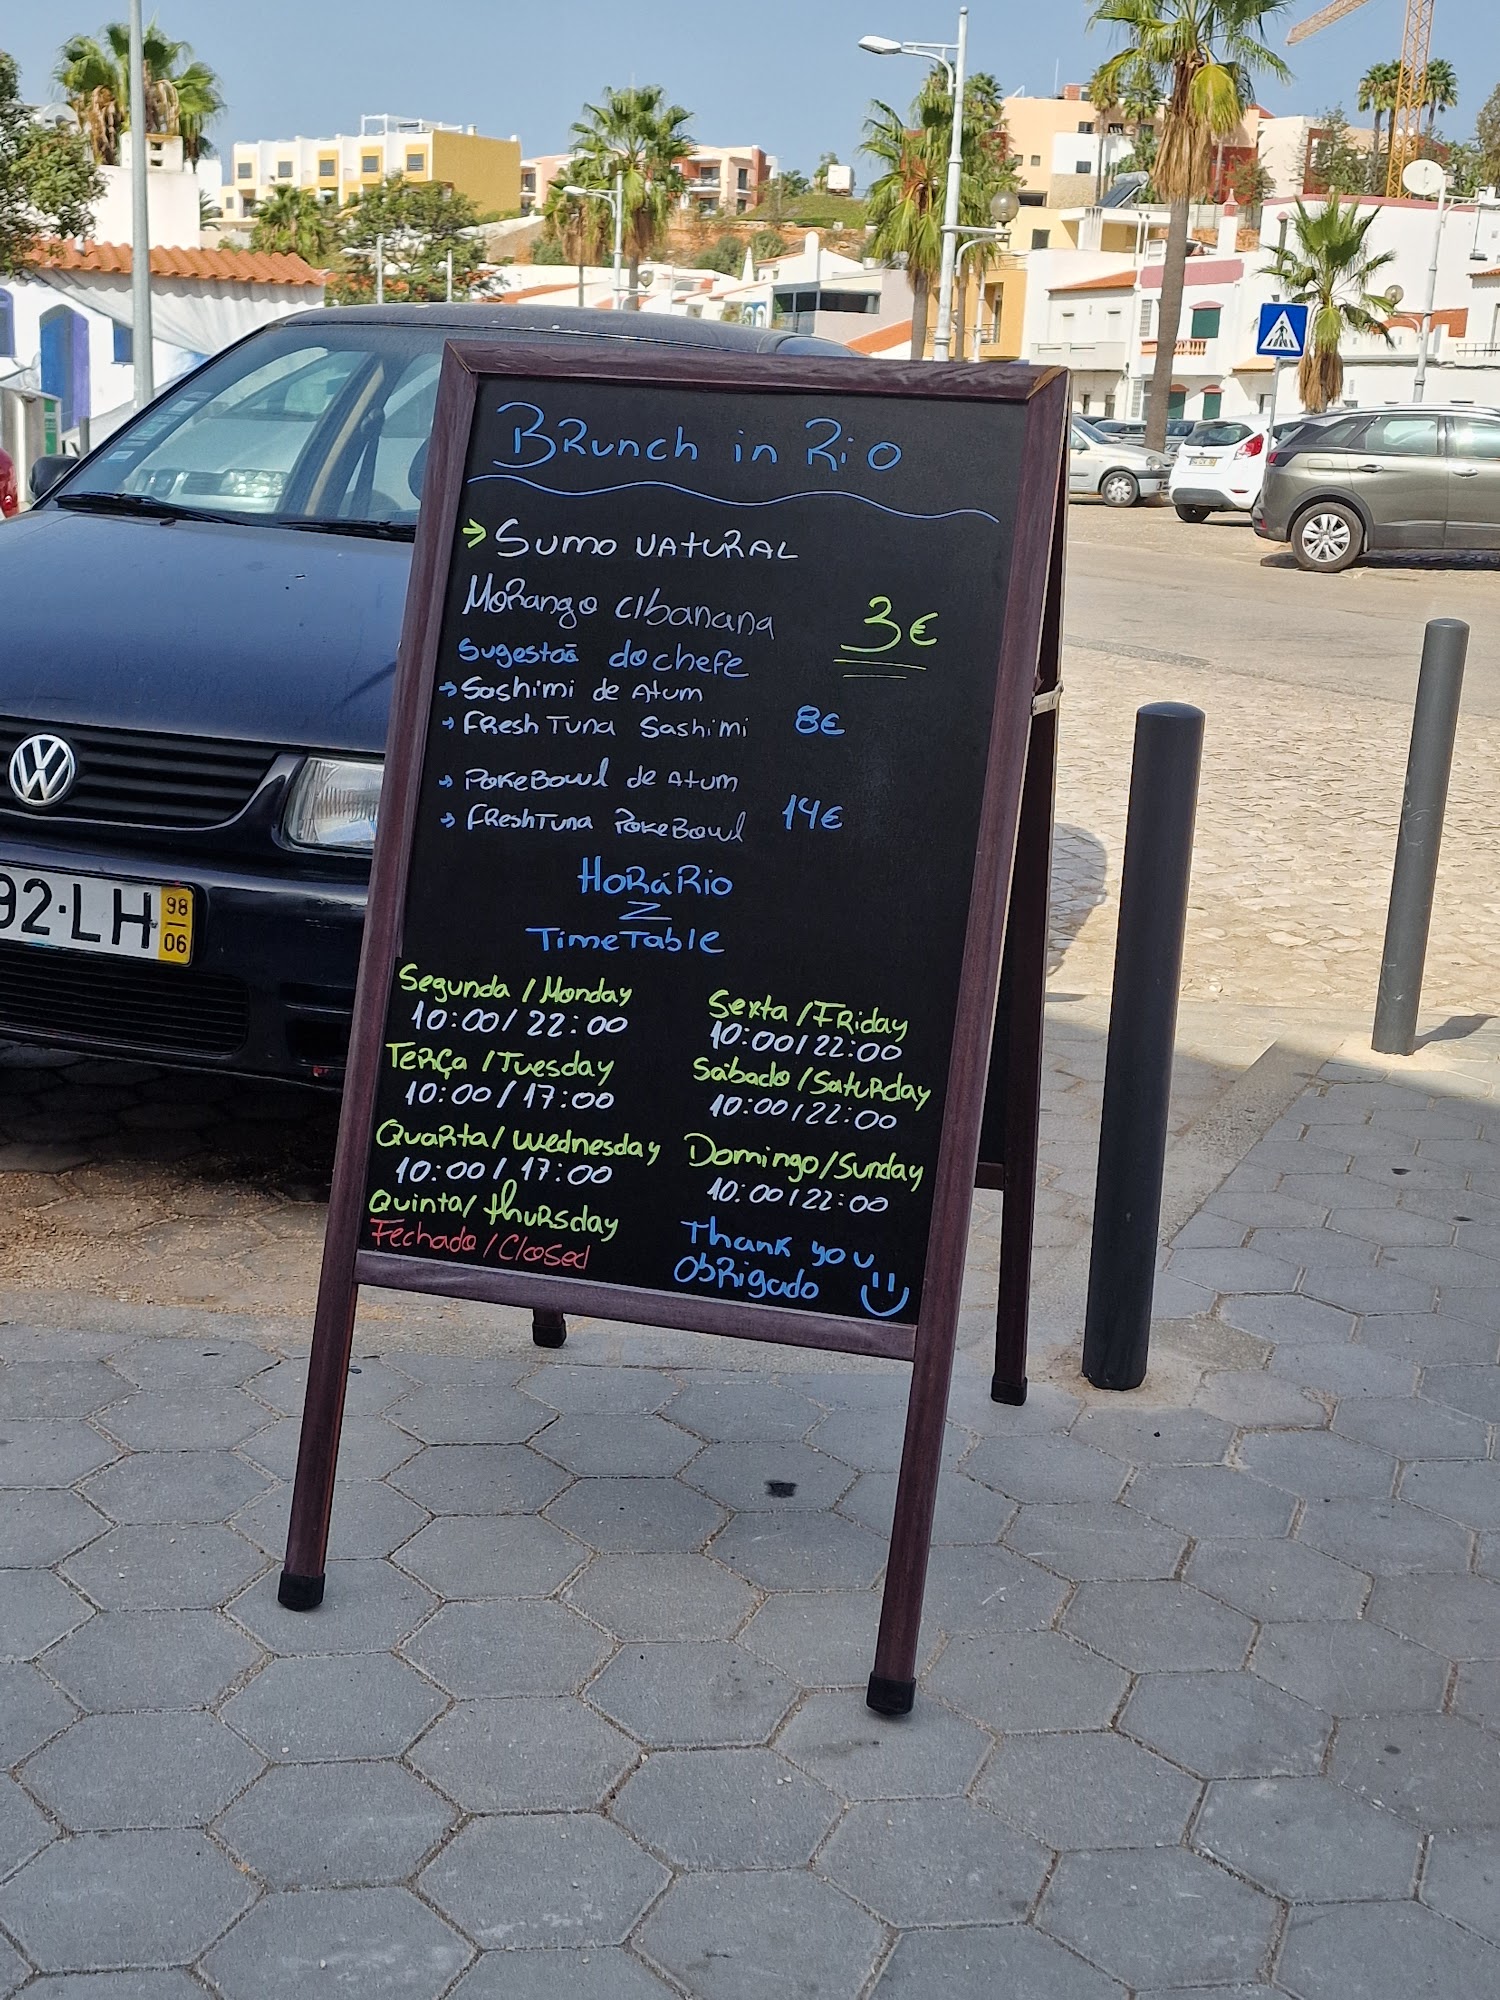 BRunch in Rio
→ Sumo NATURAL
Morango c/banana 3€
Sugestoã do chefe
→ Sashimi de Atum
→ Fresh Tuna Sashimi 8€
→ PokeBowl de Atum
→ Fresh Tuna PokeBowl 14€
Horário
TimeTable
Segunda / Monday
10:00 / 22:00
Terça / Tuesday
10:00 / 17:00
Quarta / Wednesday
10:00 / 17:00
Quinta / thursday
Fechado / Closed
Sexta / Friday
10:00 / 22:00
Sábado / Saturday
10:00 / 22:00
Domingo / Sunday
10:00 / 22:00
Thank you
Obrigado
92·LH 98 06